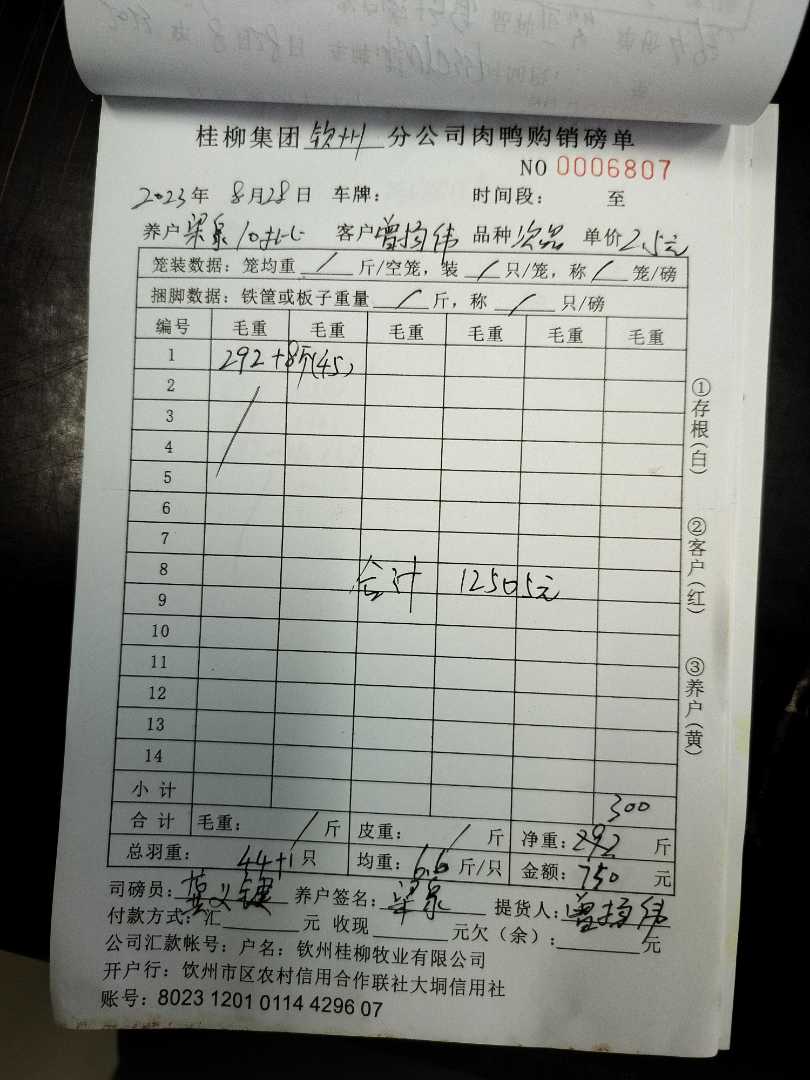 桂柳集团 钦州 分公司肉鸭购销磅单
NO 0006807
2023年 8月28日 车牌: 时间段: 至
养户 梁泉10批 客户 曾扬伟 品种 次品 单价 2.5元
笼装数据: 笼均重 / 斤/空笼, 装 / 只/笼, 称 / 笼/磅
捆脚数据: 铁筐或板子重量 / 斤, 称 / 只/磅
编号 毛重 毛重 毛重 毛重 毛重 毛重
1 292+8斤(45)
2
3
4
5
6
7
8 合计 12505元
9
10
11
12
13
14
小计 300
合计 毛重: / 斤 皮重: / 斤 净重: 292 斤
总羽重: 44+1 只 均重: 6.6 斤/只 金额: 750 元
司磅员: 养户签名: 梁泉 提货人: 曾扬伟
付款方式: 汇 元 收现 元欠(余): 元
公司汇款帐号: 户名: 钦州桂柳牧业有限公司
开户行: 钦州市区农村信用合作联社大垌信用社
账号: 8023 1201 0114 4296 07
①存根(白)
②客户(红)
③养户(黄)